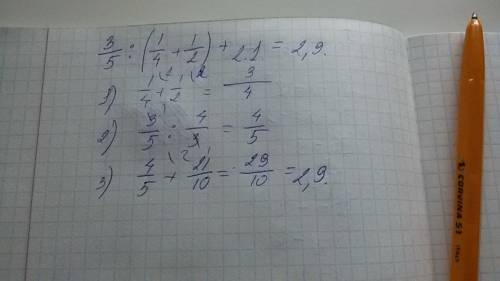 3/5 : (1/4 + 1/2) + 2.1 = 2,9.
1) 1/4 + 1/2 = 3/4
2) 3/5 : 4/3 = 4/5
3) 4/5 + 21/10 = 29/10 = 2,9.
CORVINA 51